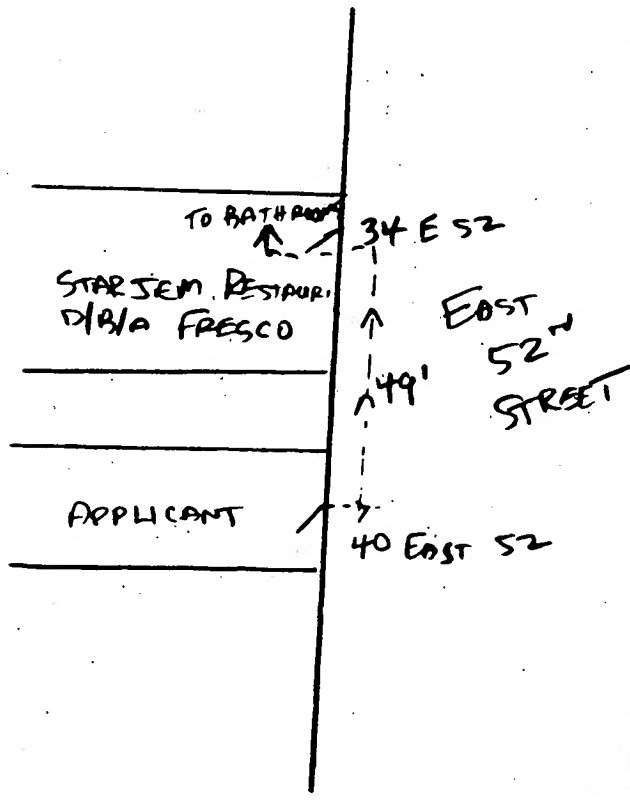 TO BATHROOM
34 E 52
STARJEM. RESTAUR.
D/B/A FRESCO
EAST
52nd
STREET
49'
APPLICANT
40 EAST 52